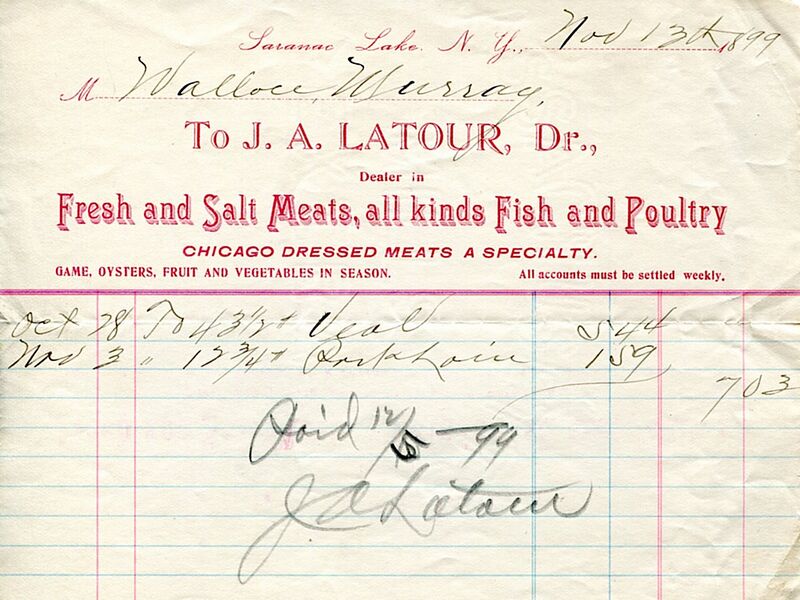 Saranac Lake, N. Y., Nov 13th 1899
M Wallace Murray,
To J. A. LATOUR, Dr.,
Dealer in
Fresh and Salt Meats, all kinds Fish and Poultry
CHICAGO DRESSED MEATS A SPECIALTY.
GAME, OYSTERS, FRUIT AND VEGETABLES IN SEASON. All accounts must be settled weekly.
Oct 28 To 43 1/2 # Veal 5 44
Nov 3 " 12 3/4 # Pork Loin 1 59
7 03
Paid 12/5-99
J A Latour